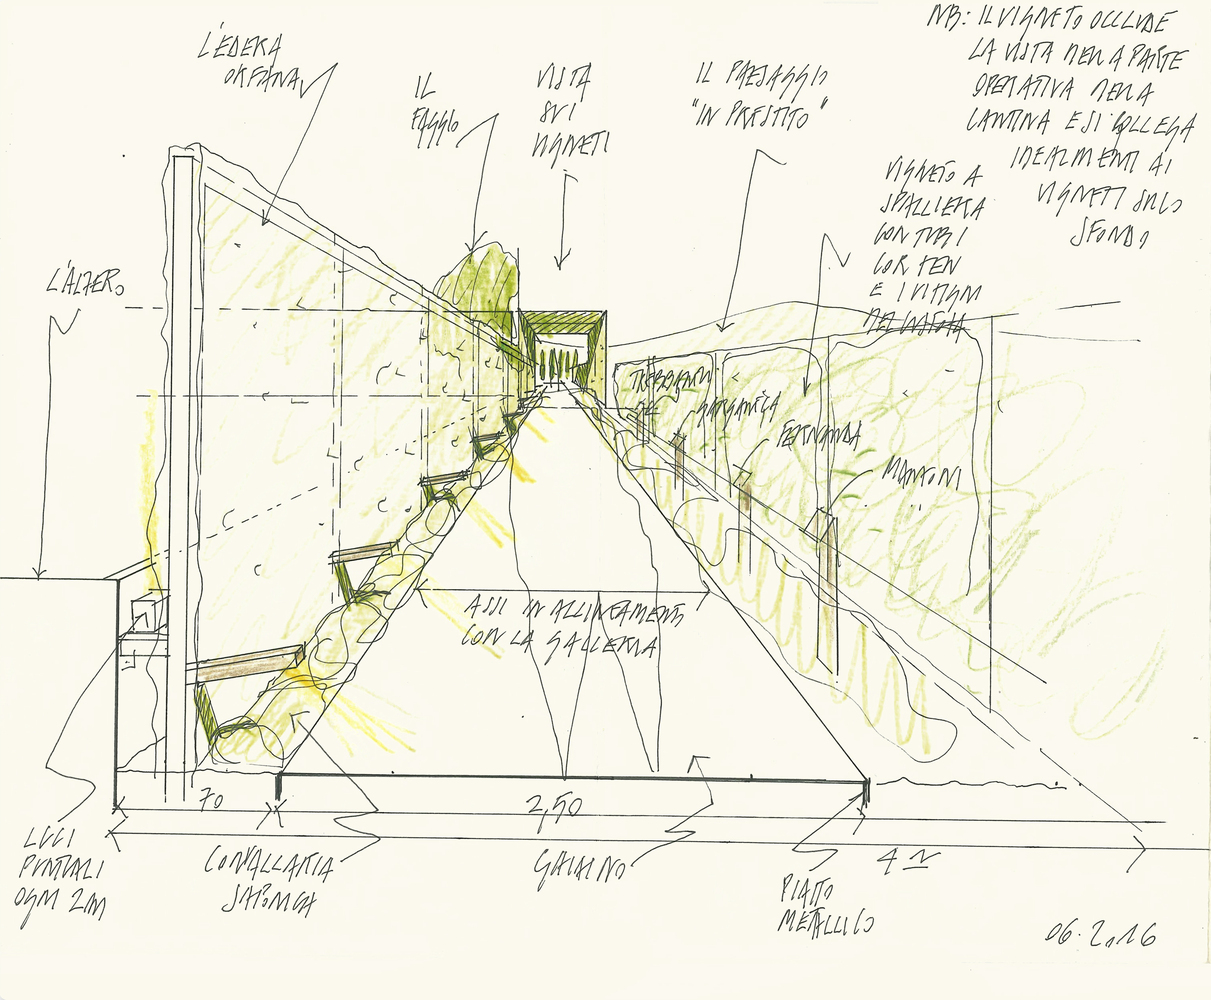 NB: IL VIGNETO OCCLUDE
LA VISTA NELLA PARTE
OPERATIVA DELLA
CANTINA E SI COLLEGA
IDEALMENTE AI
VIGNETI SULLO
SFONDO
L'EDERA
IL
FAGGIO
VISTA
SUI
VIGNETI
IL PAESAGGIO
"IN PRESTITO"
VIGNETO A
SPALLIERA
CON TUBI
COR TEN
E I VITIGNI
L'ALTERO
TREBBIANO
GARGANEGA
FERNANDA
MANZONI
ASSI IN ALLINEAMENTO
CON LA GALLERIA
70
2,50
4 M
LUCI
PUNTUALI
OGNI 2M
CONVALLARIA
JAPONICA
GHIAINO
PIATTO
METALLICO
06.2.16